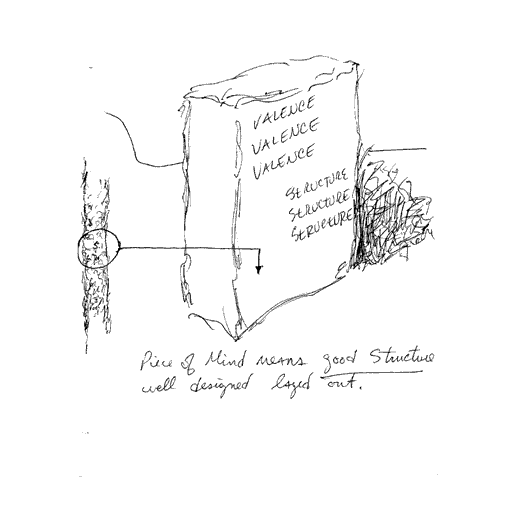 VALENCE
VALENCE
VALENCE
STRUCTURE
STRUCTURE
STRUCTURE
Piece of Mind means good Structure
well designed layed out.